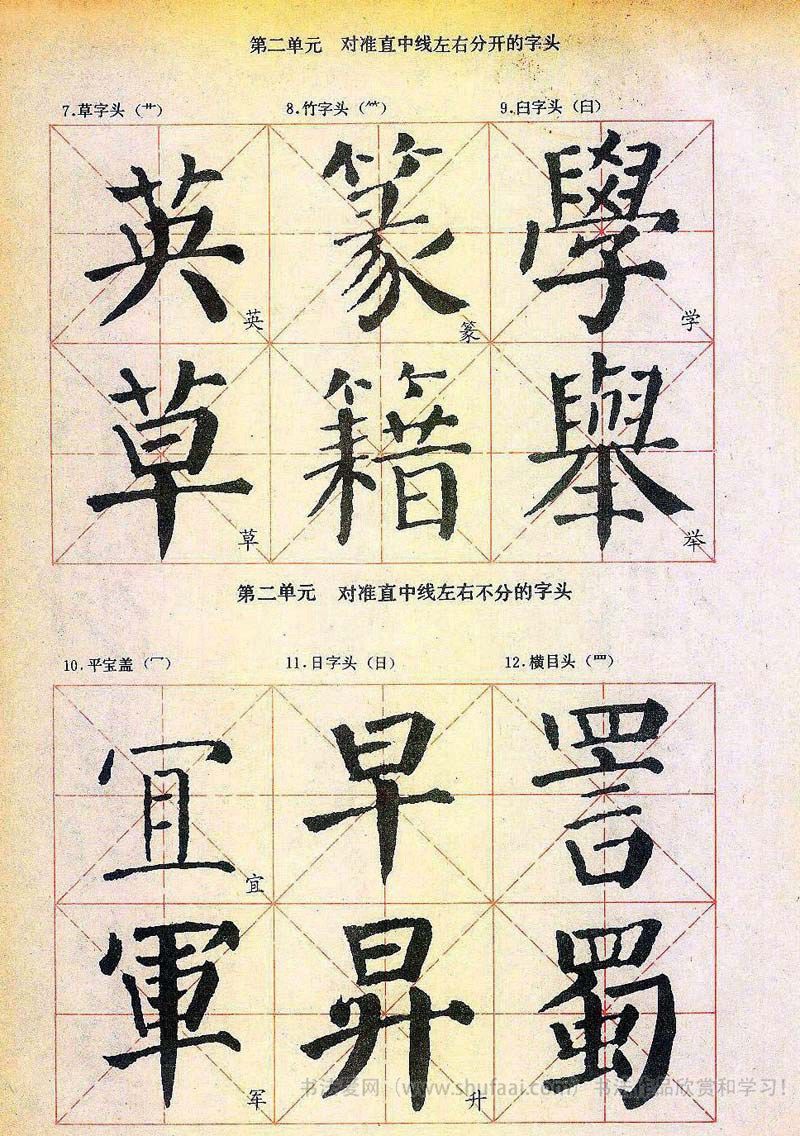 第二单元 对准直中线左右分开的字头
7.草字头（艹） 8.竹字头（⺮） 9.臼字头（臼）
英 篆 學
英 篆 学
草 籍 舉
草 举
第二单元 对准直中线左右不分的字头
10.平宝盖（冖） 11.日字头（日） 12.横目头（罒）
冝 早 詈
宜
軍 昇 蜀
军 升
书法爱网（www.shufaai.com）书法作品欣赏和学习！